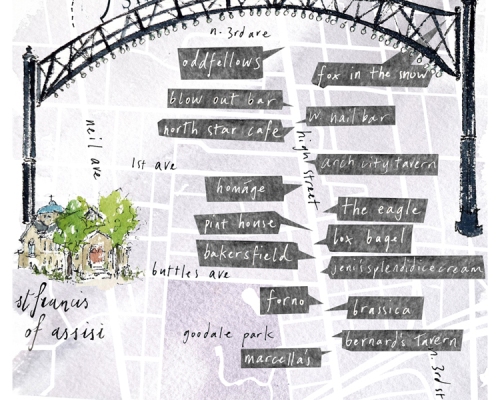 n. 3rd ave
oddfellows
fox in the snow
blow out bar
w nail bar
north star cafe
neil ave
high street
1st ave
arch city tavern
homage
the eagle
pint house
box bagel
bakersfield
jeni's splendid icecream
buttles ave
st francis
of assisi
forno
brassica
goodale park
bernard's tavern
marcella's
n. 3rd st